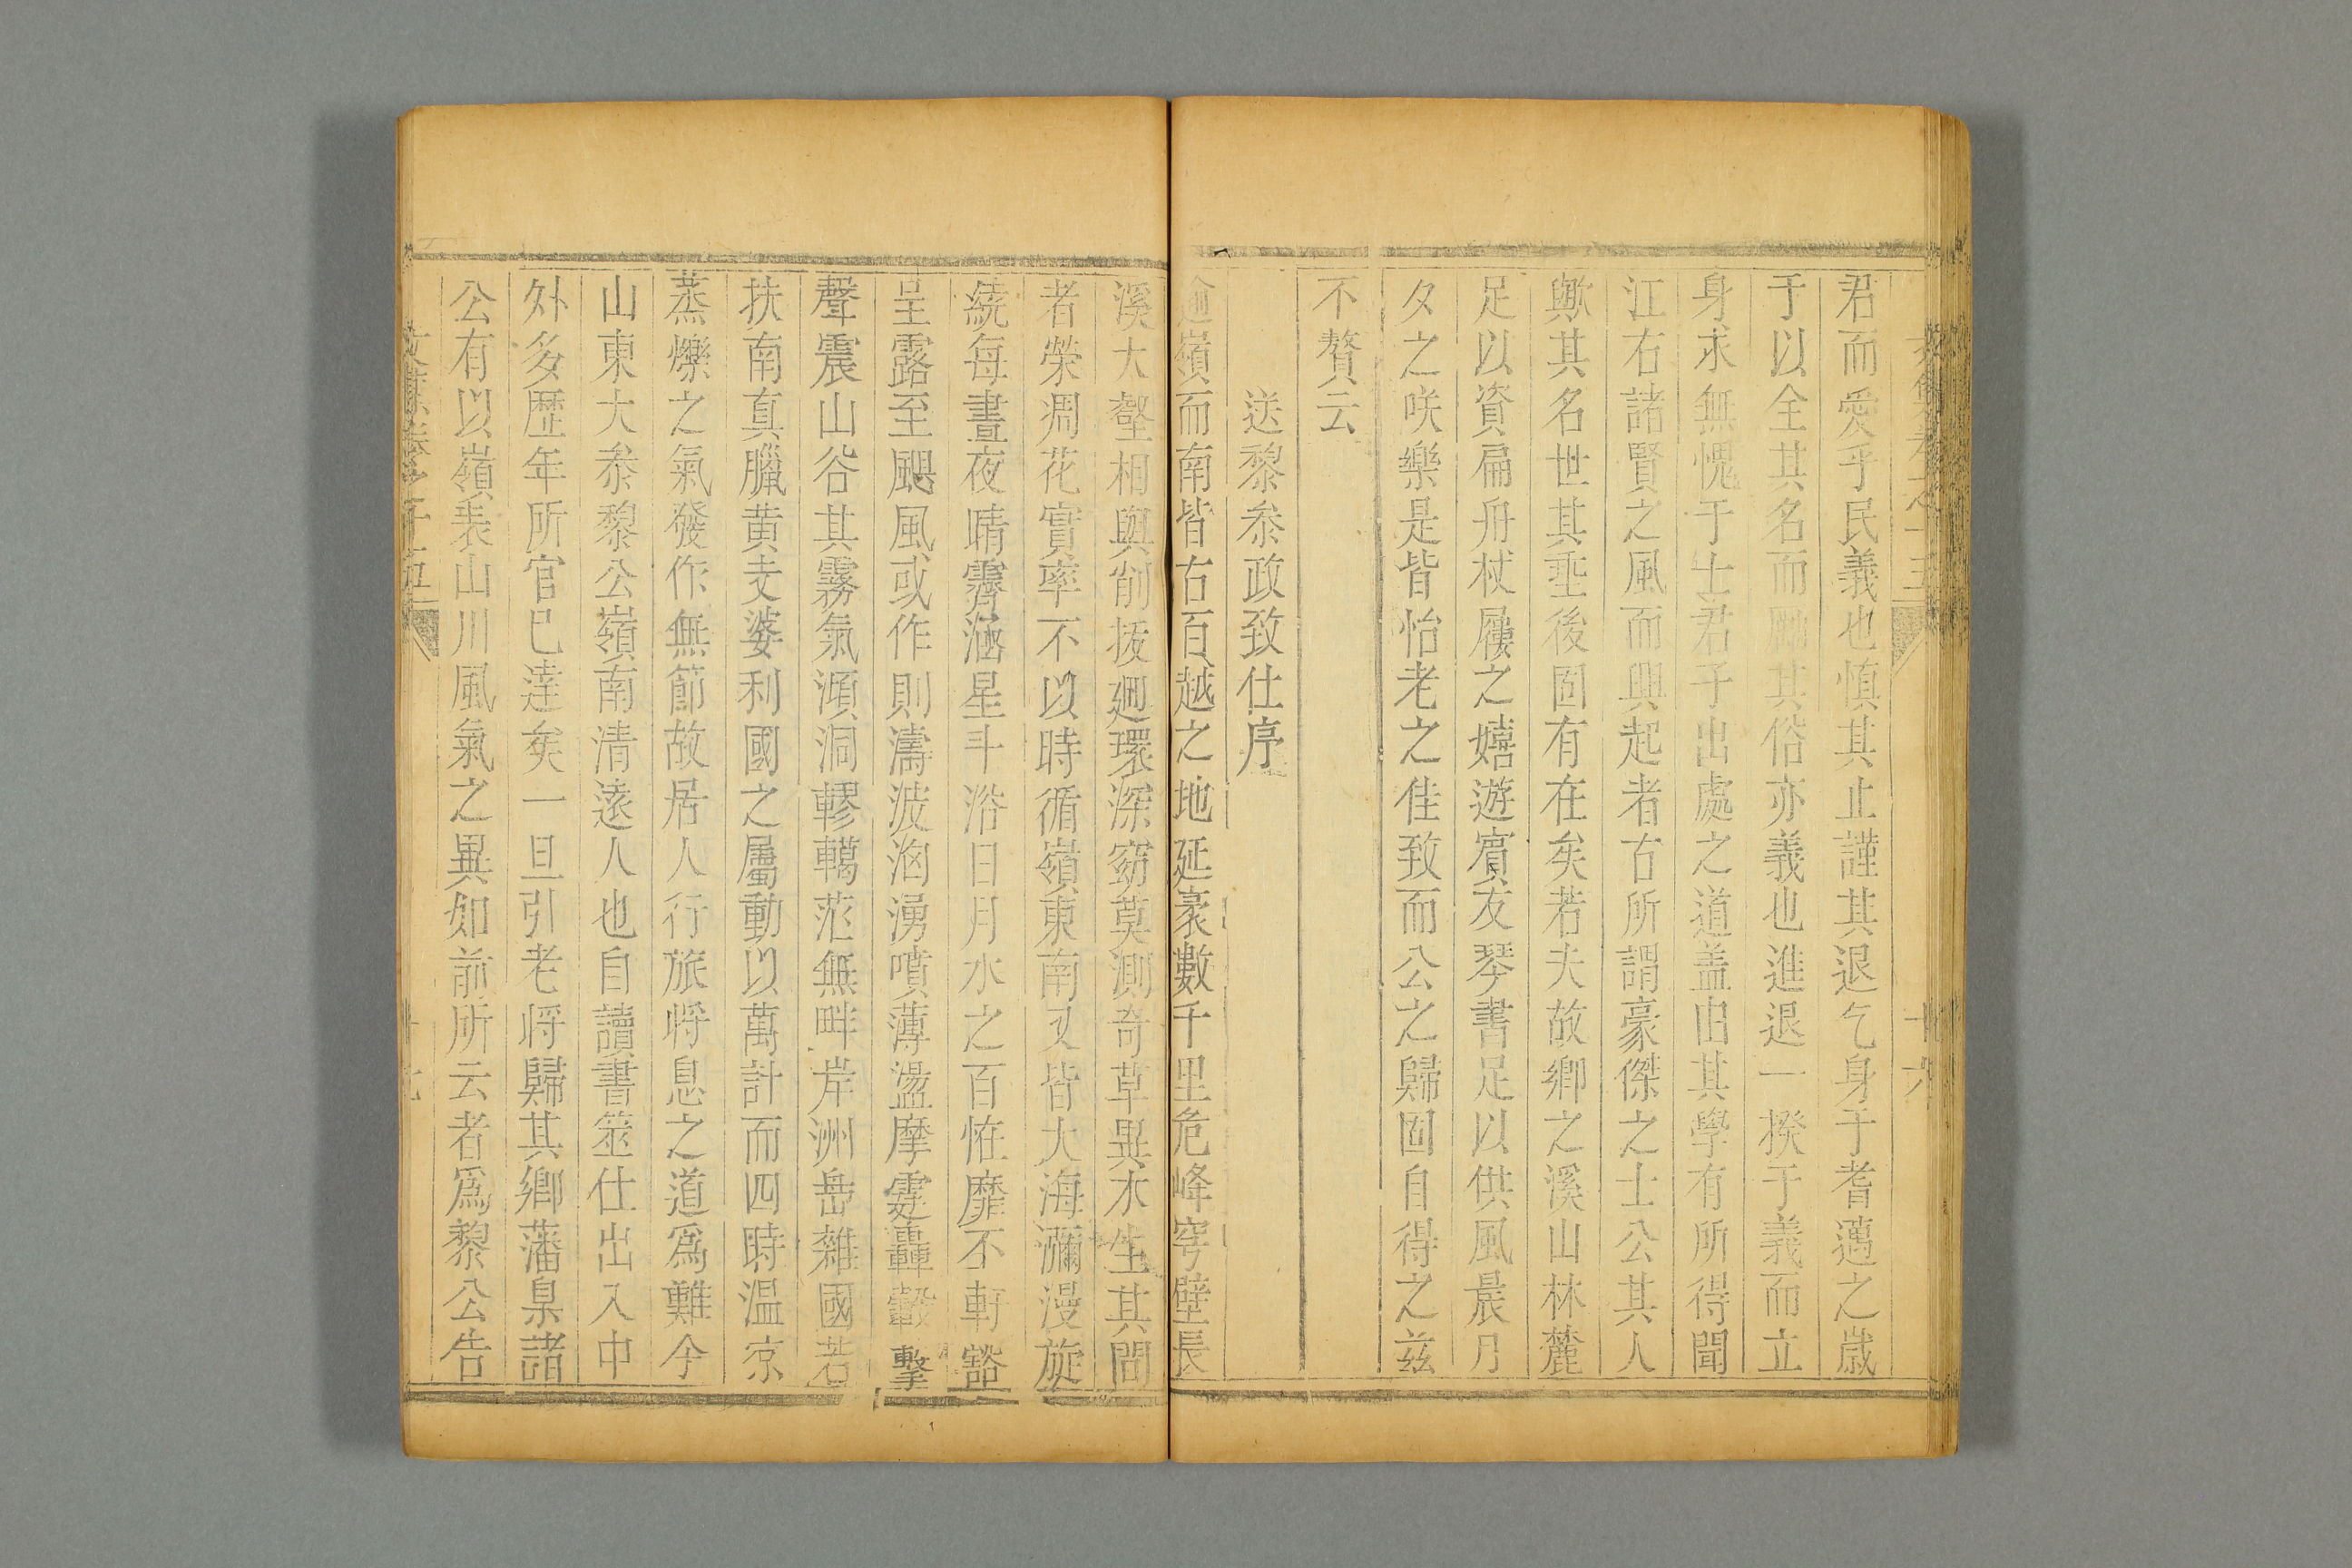 君而愛乎民義也慎其止謹其退乞身于耆邁之歲
于以全其名而勵其俗亦義也進退一揆于義而立
身求無愧于士君子出處之道盖由其學有所得聞
江右諸賢之風而興起者古所謂豪傑之士公其人
歟其名世其垂後固有在矣若夫故鄉之溪山林麓
足以資扁舟杖屨之嬉遊賓友琴書足以供風晨月
夕之咲樂是皆怡老之佳致而公之歸固自得之兹
不贅云
送黎叅政致仕序
逾嶺而南皆古百越之地延袤數千里危峰穹壁長
溪大壑相與削拔廻環深窈莫測奇草異木生其間
者榮凋花實率不以時循嶺東南又皆大海瀰漫旋
繞每晝夜晴霽涵星斗浴日月水之百恠靡不軒豁
呈露至颶風或作則濤波洶湧噴薄盪摩霆轟轂擊
聲震山谷其霧氣澒洞轇轕茫無畔岸洲島雜國若
扶南真臘黄支婆利國之屬動以萬計而四時温凉
蒸爍之氣發作無節故居人行旅将息之道爲難今
山東大叅黎公嶺南清遠人也自讀書筮仕出入中
外多歷年所官已達矣一旦引老将歸其鄉藩臬諸
公有以嶺表山川風氣之異如前所云者爲黎公告
文集卷之十五